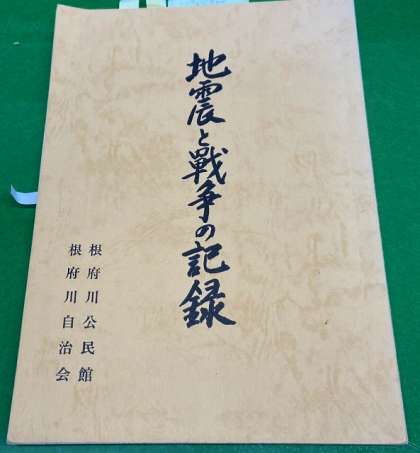 地震と戰争の記録
根府川公民館
根府川自治会